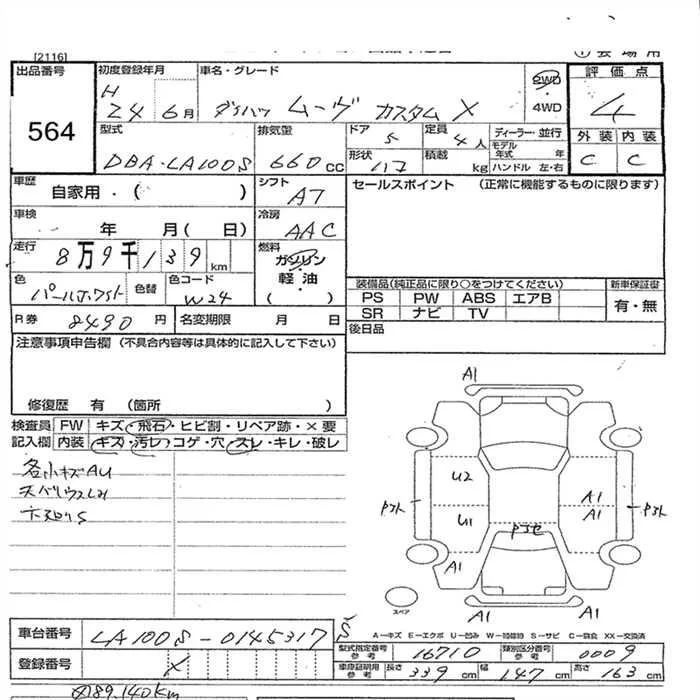 [2116]
出品番号
564
初度登録年月
H
24 6月
車名・グレード
ダイハツ ムーヴ カスタム X
2WD
4WD
評価点
4
外装 内装
C C
型式
DBA-LA100S
排気量
660 CC
ドア
5
定員
4 人
形状
積載
kg
ディーラー・並行
モデル年式 年
ハンドル 左・右
車歴
自家用・( )
シフト
AT
車検
年 月( 日)
冷房
AAC
走行
8万9千139 km
燃料
ガソリン
軽油
( )
色
パールホワイト
色替
色コード
W24
R券
8490 円
名変期限 月 日
セールスポイント (正常に機能するものに限ります)
装備品(純正品に限り○をつけてください)
PS PW ABS エアB
SR ナビ TV
新車保証書
有・無
後日品
注意事項申告欄 (不具合内容等は具体的に記入して下さい)
修復歴 有 (箇所 )
検査員 FW キズ・飛石・ヒビ割・リペア跡・×要
記入欄 内装 キズ・汚レ・コゲ・穴・スレ・キレ・破レ
各小キズAU
下廻りS
A1
U2
U1
A1
A1
A1
A1
A1
スペア
A-キズ E-エクボ U-凹み W-補修跡 S-サビ C-腐食 XX-交換済
車台番号
LA100S-0145317
登録番号
X
型式指定番号 参考
16710
類別区分番号 参考
0009
車庫証明用 参考
長さ 339 cm 幅 147 cm 高さ 163 cm
89,140km